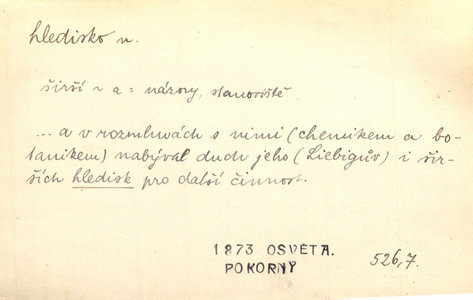 hledisko n.
širší ~ a = názory, stanoviště
... a v rozmluvách s nimi (chemikem a bo-
tanikem) nabýval duch jeho (Liebigův) i šir-
ších hledisk pro další činnost.
1873 OSVĚTA.
POKORNÝ
526,7.